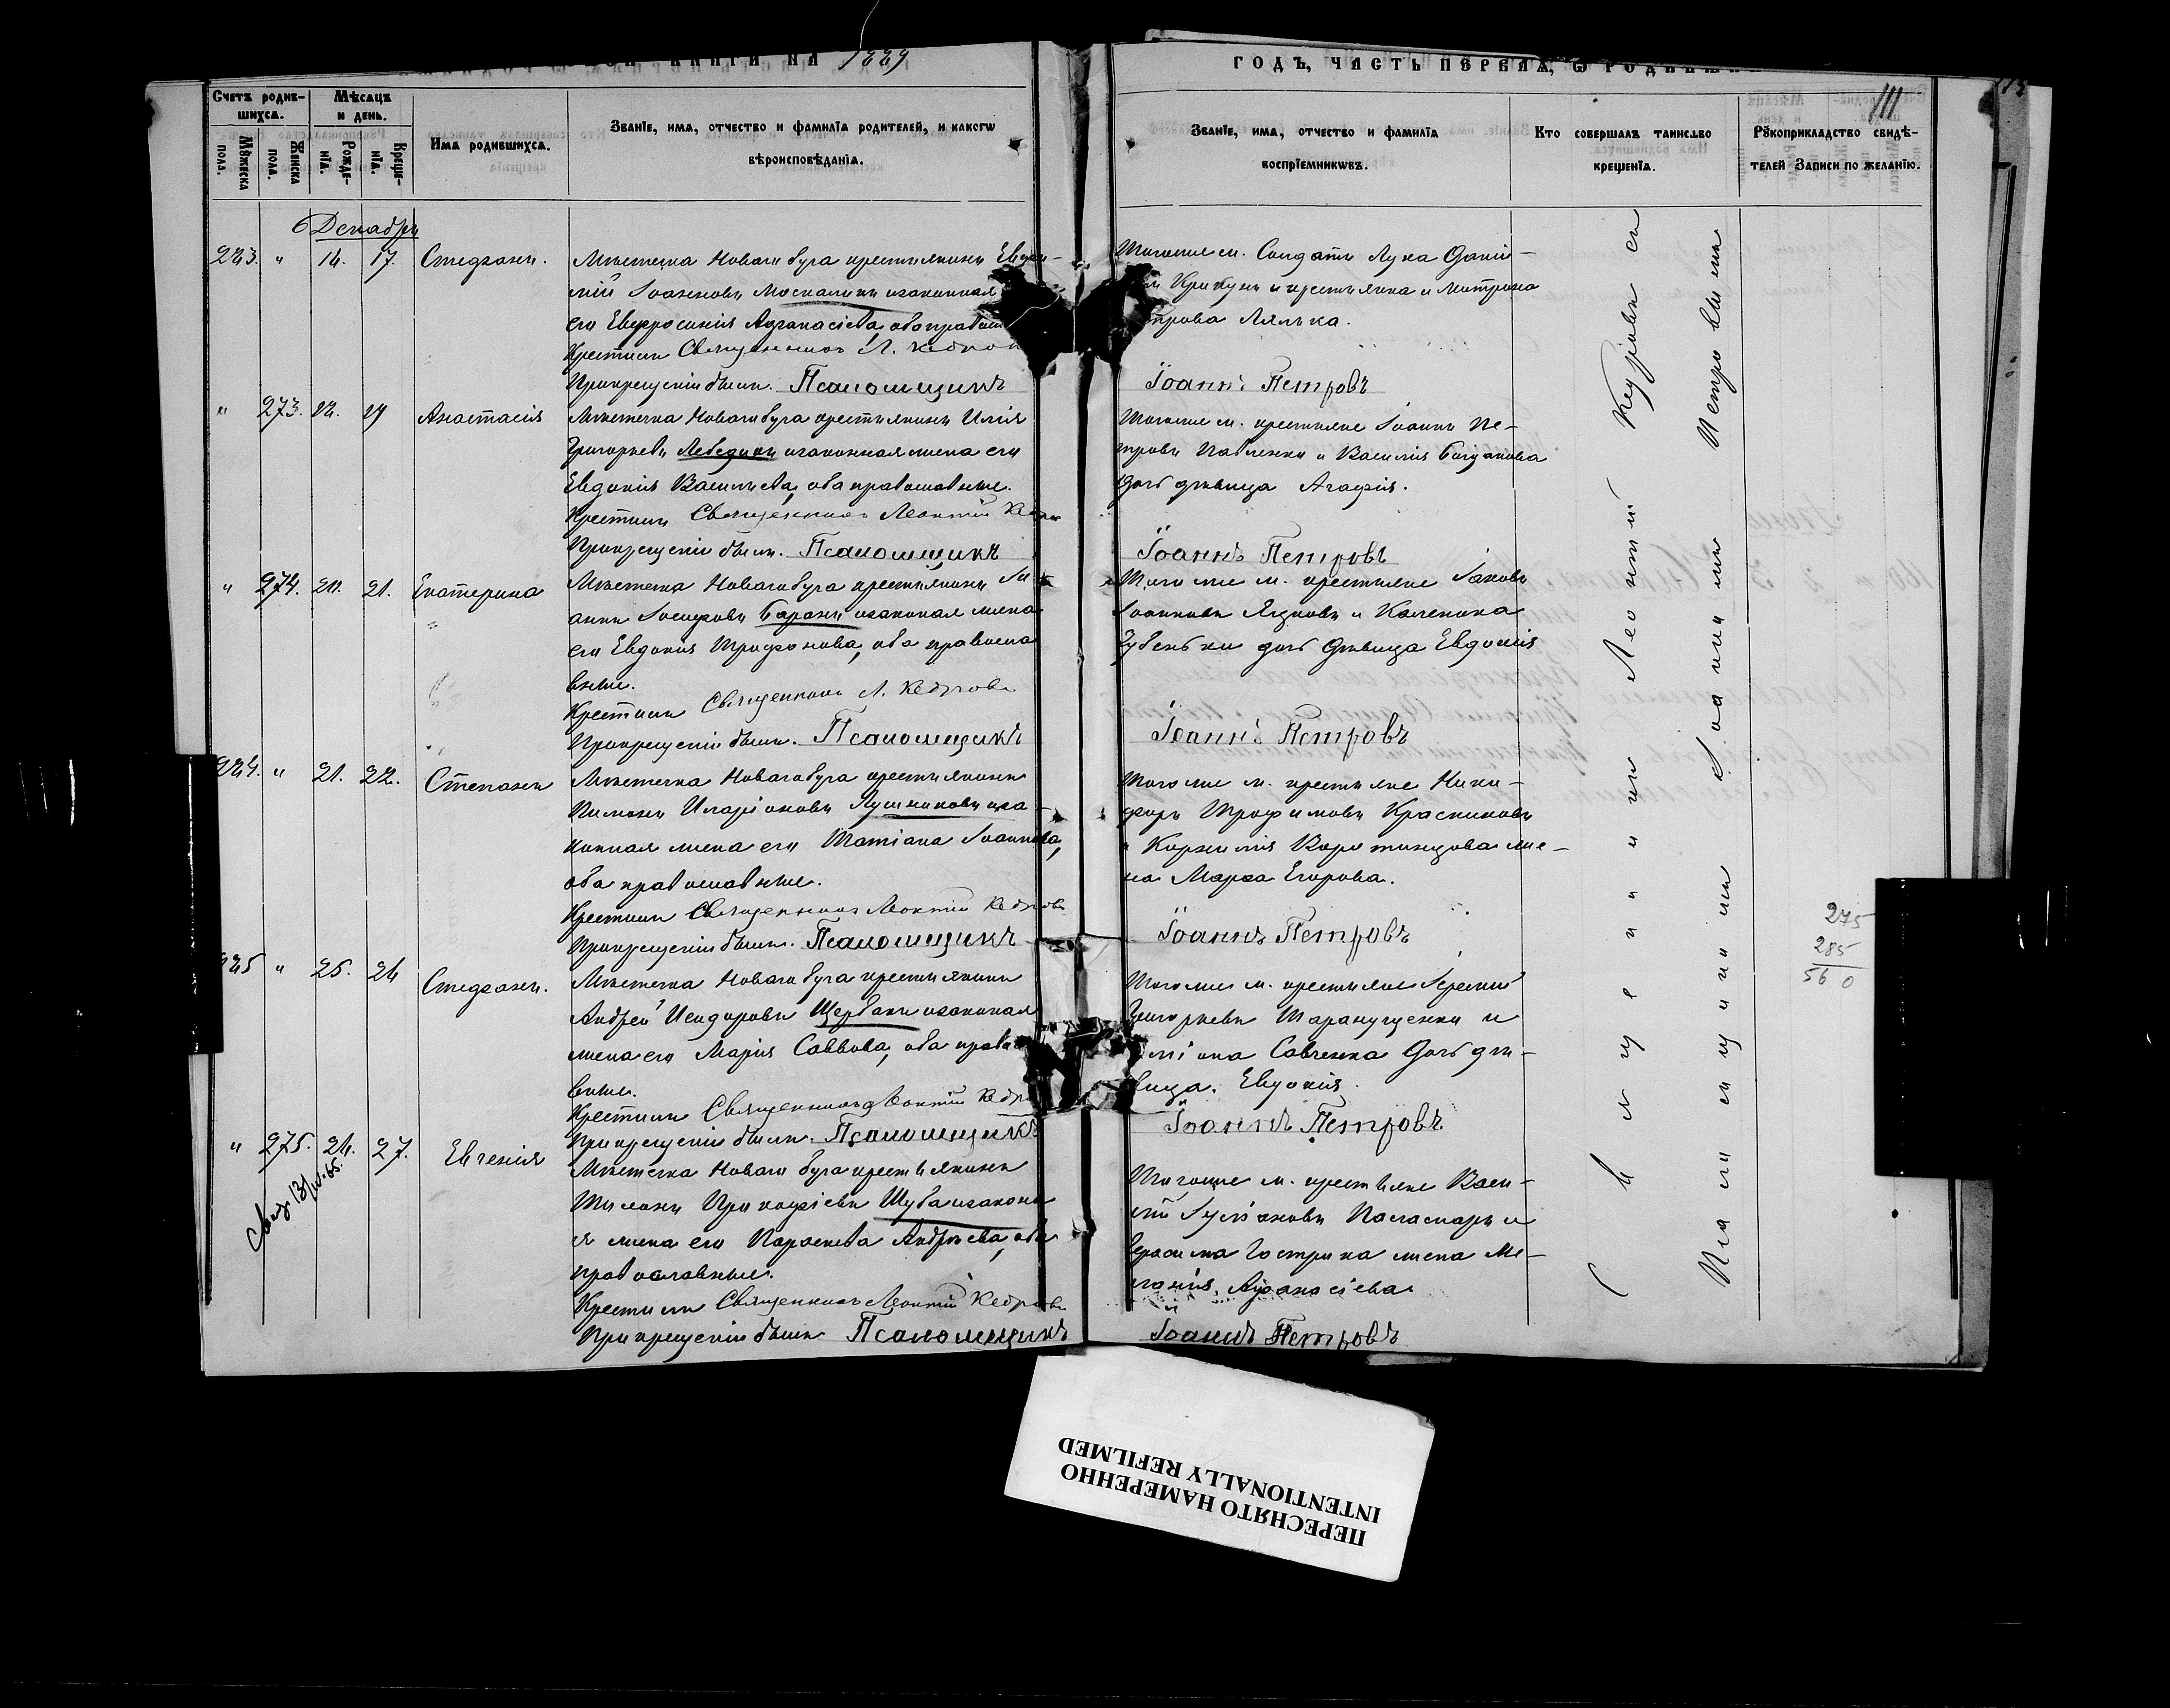 КНИГИ НА 1889
ГОДЪ, ЧАСТЬ ПЕРВАЯ, Ѡ РОДИВШ
111
Счетъ родив-
шихся.
Мѣсяцъ
и день.
Мужеска
пола.
Женска
пола.
Рожде-
нїя.
Креще-
нїя.
Имя родившихся.
Званїе, имя, отчество и фамилїя родителей, и какогѡ
вѣроисповѣданїя.
Званїе, имя, отчество и фамилїя
воспрїемниковъ.
Кто совершалъ таинство
крещенїя.
Рукоприкладство свидѣ-
телей записи по желанїю.
Декабрь
283. " 14. 17. Стефанъ.
Мѣстечка Новаго буга крестьянинъ Евфи-
мій Іоанновъ Москаликъ изаконная
его Евфросинія Аѳанасіева, оба правосл
Крестилъ Священникъ Л. Кедров
При крещеніи былъ. Псаломщикъ
Тогоже м. Солдатъ Лука Дані-
Крикунъ и крестьянка Матрона
трова Лялька.
Іоаннъ Петровъ
" 273. 19 Анастасія
Мѣстечка Новаго буга крестьянинъ Илія
Григорьевъ Лебедикъ изаконная жена его
Евдокія Васильева, оба православные.
Крестилъ Священникъ Леонтій Кедров
При крещеніи былъ. Псаломщикъ
Тогоже м. крестьяне Іоаннъ Пе-
тровъ Павленко и Василія Богданова
дочь дѣвица Агафія.
Іоаннъ Петровъ
" 274. 20. 21. Екатерина
Мѣстечка Новаго буга крестьянинъ Іо-
аннъ Іосифовъ Баранъ изаконая жена
его Евдокія Трифонова, оба правосла
вные.
Крестилъ Священникъ Л. Кедровъ
При крещеніи былъ. Псаломщикъ
Того же м. крестьяне Іаковъ
Іоанновъ Яцковъ и Каленика
Губенъка дочь дѣвица Евдокія
Іоаннъ Петровъ
284. " 21. 22. Степанъ
Мѣстечка Новаго буга крестьянинъ
Пименъ Иларіоновъ Лушниковъ иза-
конная жена его Татіана Іоаннова,
оба православные.
Крестилъ Священникъ Леонтій Кедровъ
При крещеніи былъ. Псаломщикъ
Того же м. крестьяне Ники-
форъ Трофимовъ Красниковъ
и Корнилія Коротинцова же-
на Марѳа Егорова.
Іоаннъ Петровъ
285 " 25. 26 Стефанъ.
Мѣстечка Новаго буга крестьянинъ
Андрей Исидоровъ Щербакъ изаконая
жена его Марія Саввова, оба право
вные.
Крестилъ Священникъ Леонтій Кедр
При крещеніи былъ. Псаломщикъ
Тогоже м. крестьяне
Григорьевъ Таранущенко и
Савченка дочь дѣ-
вица. Евдокія.
Іоаннъ Петровъ
" 275. 26. 27. Евгенія
Мѣстечка Новаго буга крестьянинъ
Прокофіевъ Шуба изаконна
я жена его Параскева Андрѣева, оба
православные.
Крестилъ Священникъ Леонтій Кедровъ
При крещеніи былъ Псаломщикъ
Тогоже м. крестьяне Васи-
лій Паламарь и
Герасима Гострика жена Ме-
ланія Аѳанасіева
Іоаннъ Петровъ
Священникъ Леонтій Кедровъ съ
Псаломщикомъ Іоанномъ Петровымъ
275
285
56 0
ПЕРЕСНЯТО НАМЕРЕННО
INTENTIONALLY REFILMED